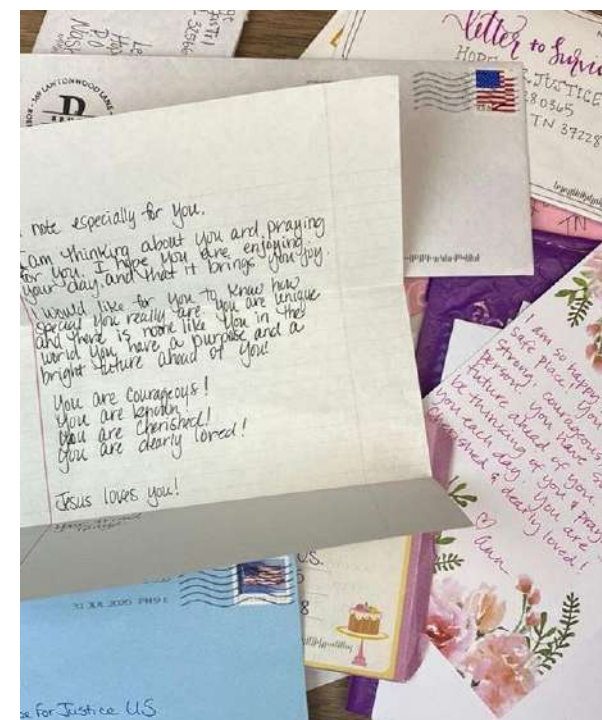 letter to
HOPE JUSTICE
280365
TN 37228
note especially for you.
I am thinking about you and praying
for you. I hope you are enjoying
your day and that it brings you joy.
I would like for you to know how
special you really are. You are unique
and there is none like you in this
world you have a purpose and a
bright future ahead of you!
You are courageous!
You are known!
You are cherished!
You are dearly loved!
Jesus loves you!
I am so happy
safe place! You
strong, courageous
person! You have
future ahead of you.
be thinking of you & pray
you each day. You are
cherished & dearly loved!
Ann
TN
U.S.
8
31 JUL 2020 PM
for Justice U.S.